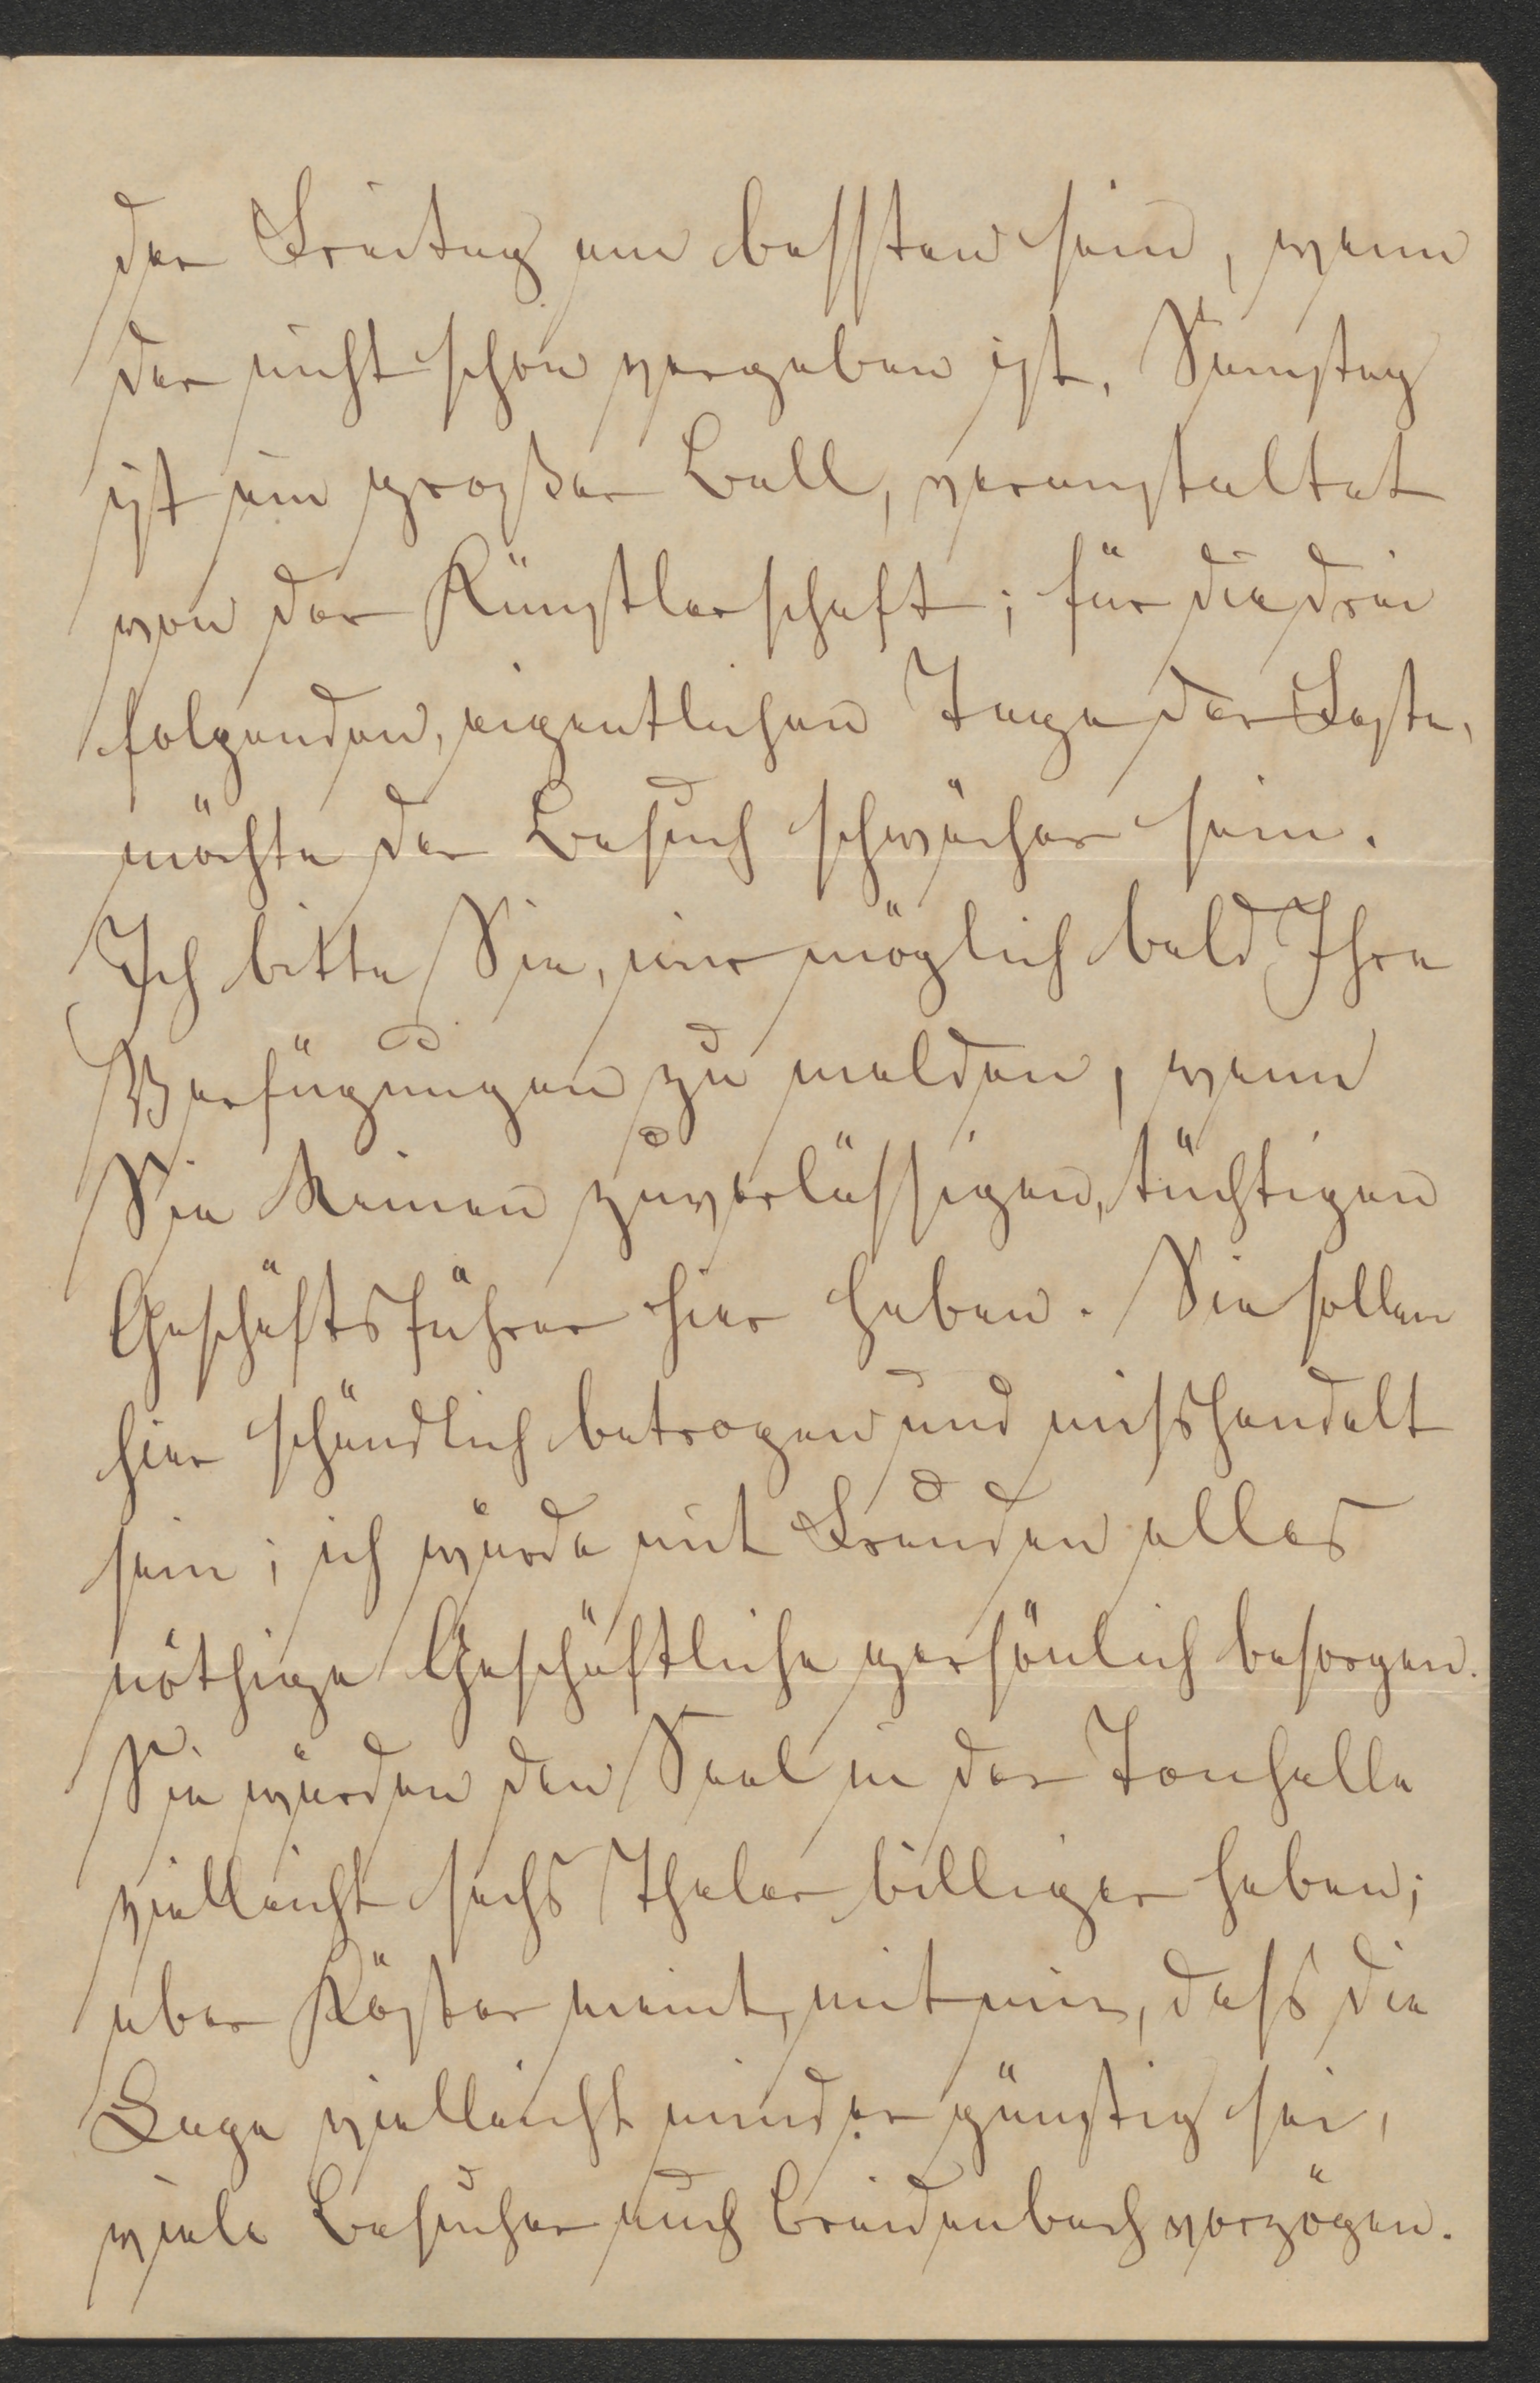 der Freitag am bessten sein, wenn
der nicht schon vergeben ist. Samstag
ist ein großer Ball, veranstaltet
von der Künstlerschaft; für die drei
folgenden, eigentlichen Tage der Feste,
möchte der Besuch schwächer sein.
Ich bitte Sie, mir möglich bald Ihre
Verfügungen zu melden, wenn
Sie keinen zuverlässigen, tüchtigen
Geschäftsführer hier haben. Sie sollen
hier schändlich betrogen und misshandelt
sein; ich würde mit Freuden alles
nöthige Geschäftliche persönlich besorgen.
Sie würden den Saal in der Tonhalle
vielleicht sechs Thaler billiger haben;
aber meint, mit mir, dass die
Lage vielleicht minder günstig sei,
viele Besucher auch Breidenbach vorzögen.